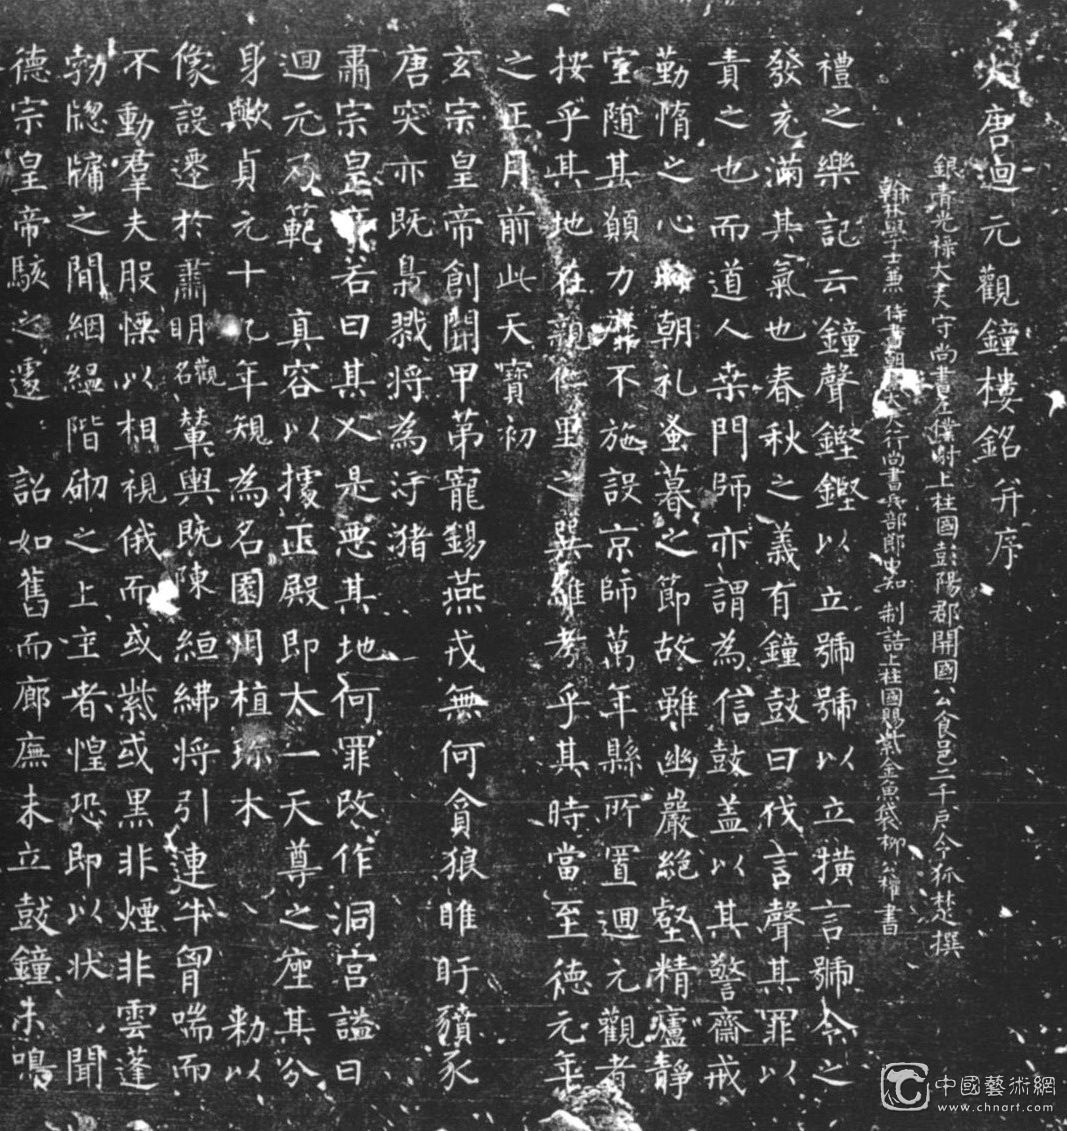 大唐迴元觀鐘樓銘并序
銀青光祿大夫守尚書左僕射上柱國彭陽郡開國公食邑二千戶令狐楚撰
翰林學士兼侍書朝大夫行尚書兵部郎中知制誥上柱國賜紫金魚袋柳公權書
禮之樂記云鐘聲鏗鏗以立號號以立撗言號令之
發充滿其氣也春秋之義有鐘鼓曰伐言聲其罪以
責之也而道人桒門師亦謂為信鼓盖以其警齋戒
勤惰之心時朝礼蚤暮之節故雖幽嚴絕壑精廬靜
室隨其願力靡不施設京師萬年縣所置迴元觀者
按乎其地在親仁里之巽維考乎其時當至德元年
之正月前此天寶初
玄宗皇帝創開甲第寵錫燕戎無何貪狼睢盱豶豕
唐突亦既梟戮将為汙猪
肅宗皇帝若曰其人是惡其地何罪改作洞宮謚曰
迴元乃範 真容以據正殿即太一天尊之座其分
身歟貞元十九年規為名園用植珍木 勑以
像設遷於肅明觀名輦輿既陳絙紼将引連牛胷喘而
不動羣夫股慄以相視俄而或紫或黑非煙非雲蓬
勃㥓牗之間絪緼階砌之上主者惶恐即以状 聞
德宗皇帝駭之遽 詔如舊而廊廡未立鼓鐘未鳴
中國藝術網
www.chnart.com